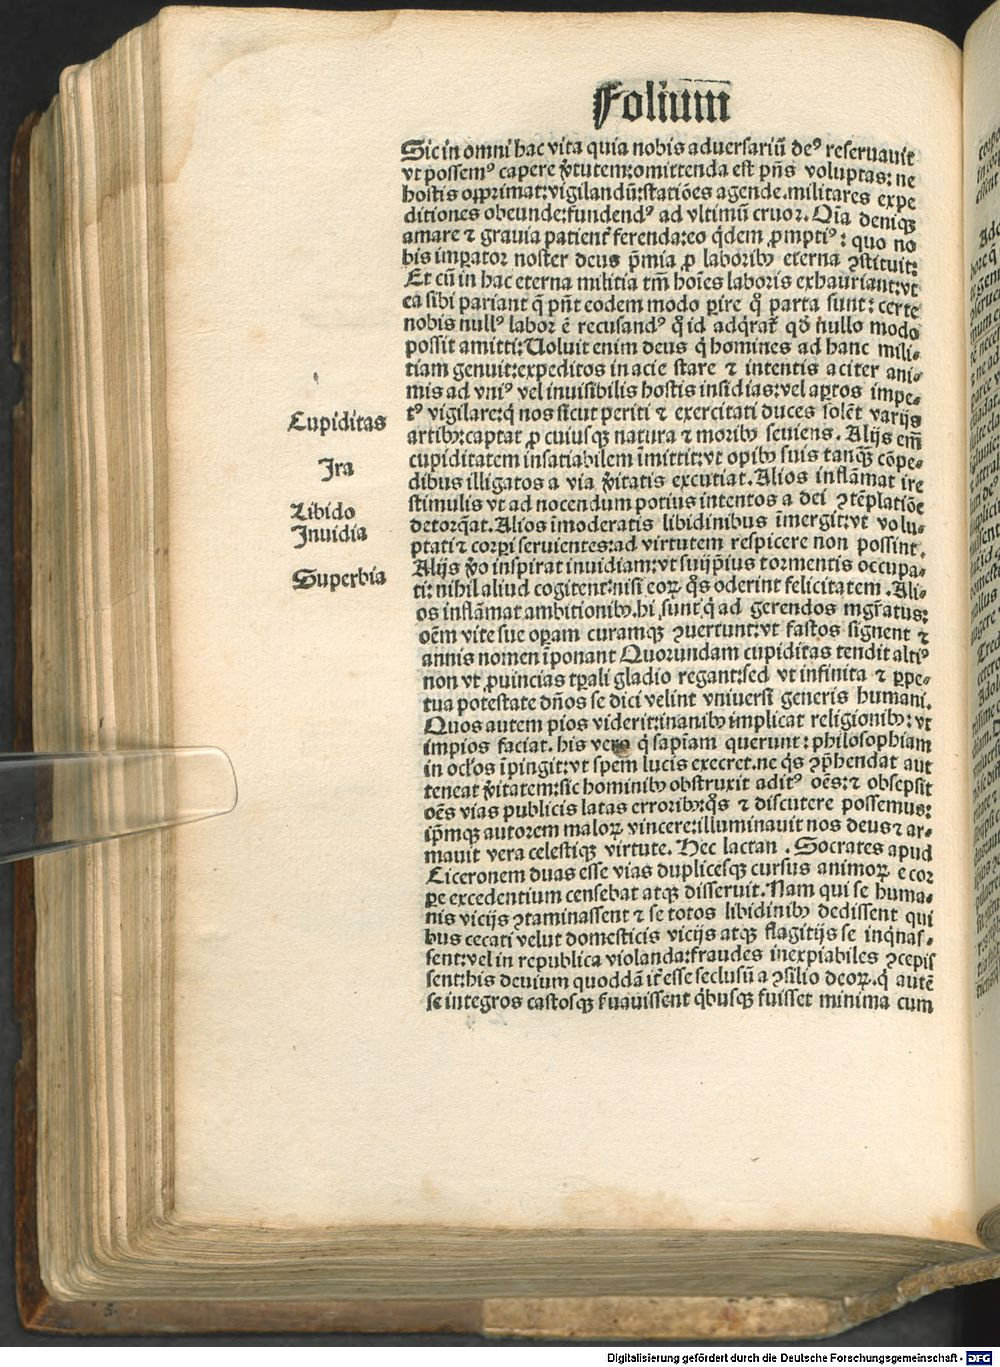 Folium
Sic in omni hac vita quia nobis aduersariũ deꝰ reseruauit
vt possemꝰ capere ꝟtutem:omittenda est pñs voluptas: ne
hostis opprimat:vigilandũ:statiões agende.militares expe
ditiones obeunde:fundendꝰ ad vltimũ cruor. Oĩa deniqꝫ
amare ⁊ grauia patient̃ ferenda:eo q̇dem ꝓmptiꝰ: quo no
bis imꝑator noster deus p̃mia ꝓ laboribꝫ eterna ꝯstituit:
Et cũ in hac eterna militia tm̃ hoĩes laboris exhauriant:vt
ea sibi pariant q̃ pñt eodem modo ꝑire q̊ parta sunt: certe
nobis nullꝰ labor ẽ recusandꝰ q̊ id adq̇rat̃ qď nullo modo
possit amitti:Uoluit enim deus q̇ homines ad hanc mili⸗
tiam genuit:expeditos in acie stare ⁊ intentis aciter ani⸗
mis ad vniꝰ vel inuisibilis hostis insidias:vel aꝑtos impe⸗
tꝰ vigilare:q̇ nos sicut periti ⁊ exercitati duces solẽt varijs
artibꝫ:captat ꝓ cuiusqꝫ natura ⁊ moribꝫ seuiens. Alijs em̃
cupiditatem insatiabilem ĩmittit:vt opibꝫ suis tanqꝫ cõpe⸗
dibus illigatos a via ꝟitatis excutiat. Alios inflãmat ire
stimulis vt ad nocendum potius intentos a dei ꝯtẽplatiõe
detorq̃at. Alios ĩmoderatis libidinibus ĩmergit:vt volu⸗
ptati ⁊ corꝑi seruientes:ad virtutem respicere non possint.
Alijs ꝟo inspirat inuidiam:vt suijp̃ius tormentis occupa⸗
ti: nihil aliud cogitent:nisi eoꝝ q̊s oderint felicitatem. Ali⸗
os inflãmat ambitionibꝫ.hi sunt q̇ ad gerendos mgr̃atus:
oẽm vite sue oꝑam curamqꝫ ꝯuertunt:vt fastos signent ⁊
annis nomen ĩponant Quorundam cupiditas tendit altiꝰ
non vt ꝓuincias tꝑali gladio regant:sed vt infinita ⁊ ꝑpe⸗
tua potestate dños se dici velint vniuersi generis humani.
Quos autem pios viderit:inanibꝫ implicat religionibꝫ: vt
impios faciat. his vero q̇ sapĩam querunt: philosophiam
in ocl̃os ĩpingit:vt spem lucis execret.ne q̇s ꝯp̃hendat aut
teneat ꝟitatem:sic hominibꝫ obstruxit aditꝰ oẽs:⁊ obsepsit
oẽs vias publicis latas erroribꝫ:q̊s ⁊ discutere possemus:
ip̃mqꝫ autorem maloꝝ vincere:illuminauit nos deus ⁊ ar⸗
mauit vera celestiqꝫ virtute. Hec lactan . Socrates apud
Ciceronem duas esse vias duplicesqꝫ cursus animoꝝ e cor
ꝑe excedentium censebat atqꝫ disseruit. Nam qui se huma⸗
nis vicijs ꝯtaminassent ⁊ se totos libidinibꝫ dedissent qui
bus cecati velut domesticis vicijs atqꝫ flagitijs se inq̇nas⸗
sent:vel in republica violanda:fraudes inexpiabiles ꝯcepis
sent:his deuium quoddã it̃ esse seclusũ a ꝯsilio deoꝝ.q̇ autẽ
se integros castosqꝫ ẜuauissent q̇busqꝫ fuisset minima cum
Cupiditas
Ira
Libido
Inuidia
Superbia
Digitalisierung gefördert durch die Deutsche Forschungsgemeinschaft - DFG